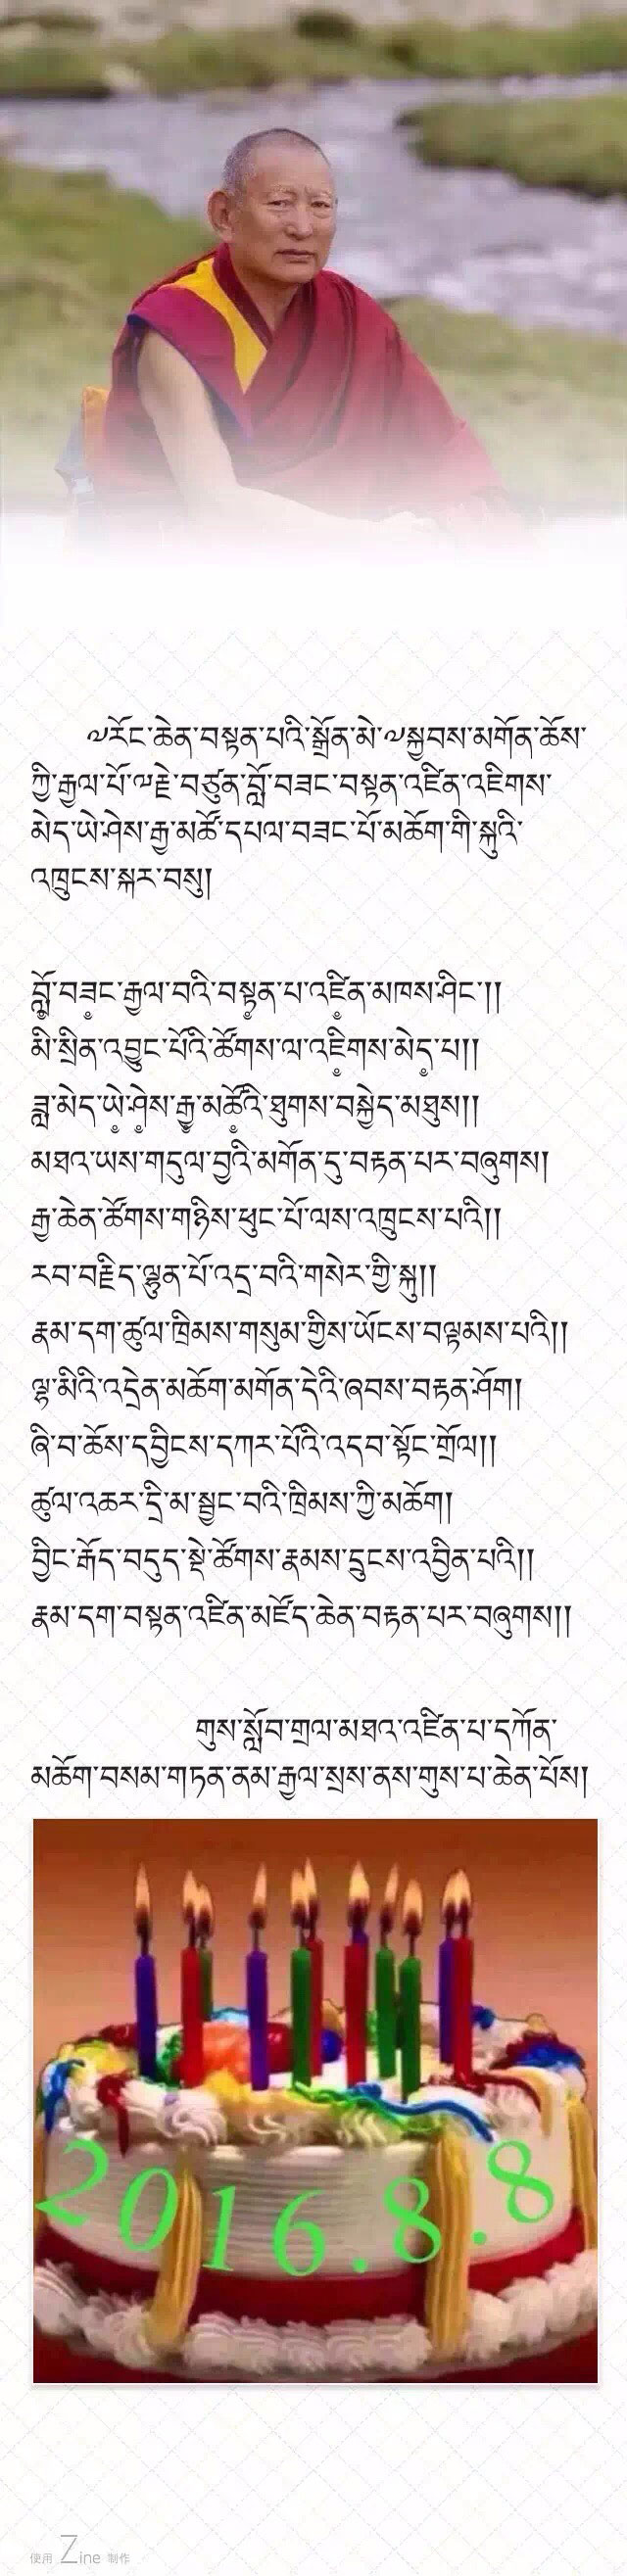 ༧རོང་ཆེན་བསྟན་པའི་སྒྲོན་མེ་༧སྐྱབས་མགོན་ཆོས་
ཀྱི་རྒྱལ་པོ་༧རྗེ་བཙུན་བློ་བཟང་བསྟན་འཛིན་འཇིགས་
མེད་ཡེ་ཤེས་རྒྱ་མཚོ་དཔལ་བཟང་པོ་མཆོག་གི་སྐུའི་
འཁྲུངས་སྐར་བསུ།
བློ༵་བཟ༵ང་རྒྱལ་བའི་བསྟ༵ན་པ་འཛི༵ན་མཁས་ཤིང་།།
མི་སྲིན་འབྱུང་པོའི་ཚོགས་ལ་འཇི༵གས་མེད༵་པ།།
ཟླ་མེད་ཡེ༵་ཤེ༵ས་རྒྱ༵་མཚོ༵འི་ཐུགས་བསྐྱེད་མཐུས།།
མཐའ་ཡས་གདུལ་བྱའི་མགོན་དུ་བརྟན་པར་བཞུགས།
རྒྱ་ཆེན་ཚོགས་གཉིས་ཕུང་པོ་ལས་འཁྲུངས་པའི།།
རབ་བརྗིད་ལྷུན་པོ་འདྲ་བའི་གསེར་གྱི་སྐུ།།
རྣམ་དག་ཚུལ་ཁྲིམས་གསུམ་གྱིས་ཡོངས་བལྟམས་པའི།།
ལྷ་མིའི་འདྲེན་མཆོག་མགོན་དེའི་ཞབས་བརྟན་ཤོག།
ཞི་བ་ཆོས་དབྱིངས་དཀར་པོའི་འདབ་སྟོང་གྲོལ།།
ཚུལ་འཆར་དྲི་མ་སྦྱང་བའི་ཁྲིམས་ཀྱི་མཆོག།
བྱིང་རྒོད་བདུད་སྡེ་ཚོགས་རྣམས་དྲུངས་འབྱིན་པའི།།
རྣམ་དག་བསྟན་འཛིན་མཛོད་ཆེན་བརྟན་པར་བཞུགས།།
གུས་སློབ་གྲལ་མཐའ་འཛིན་པ་དཀོན་
མཆོག་བསམ་གཏན་ནམ་རྒྱལ་སྲས་ནས་གུས་པ་ཆེན་པོས།
2016.8.8
使用 Zine 制作